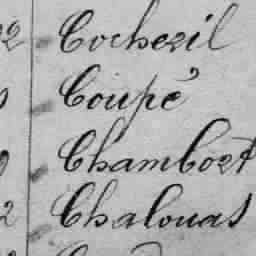 Cochezil
Coupé
Chambost
Chalouas